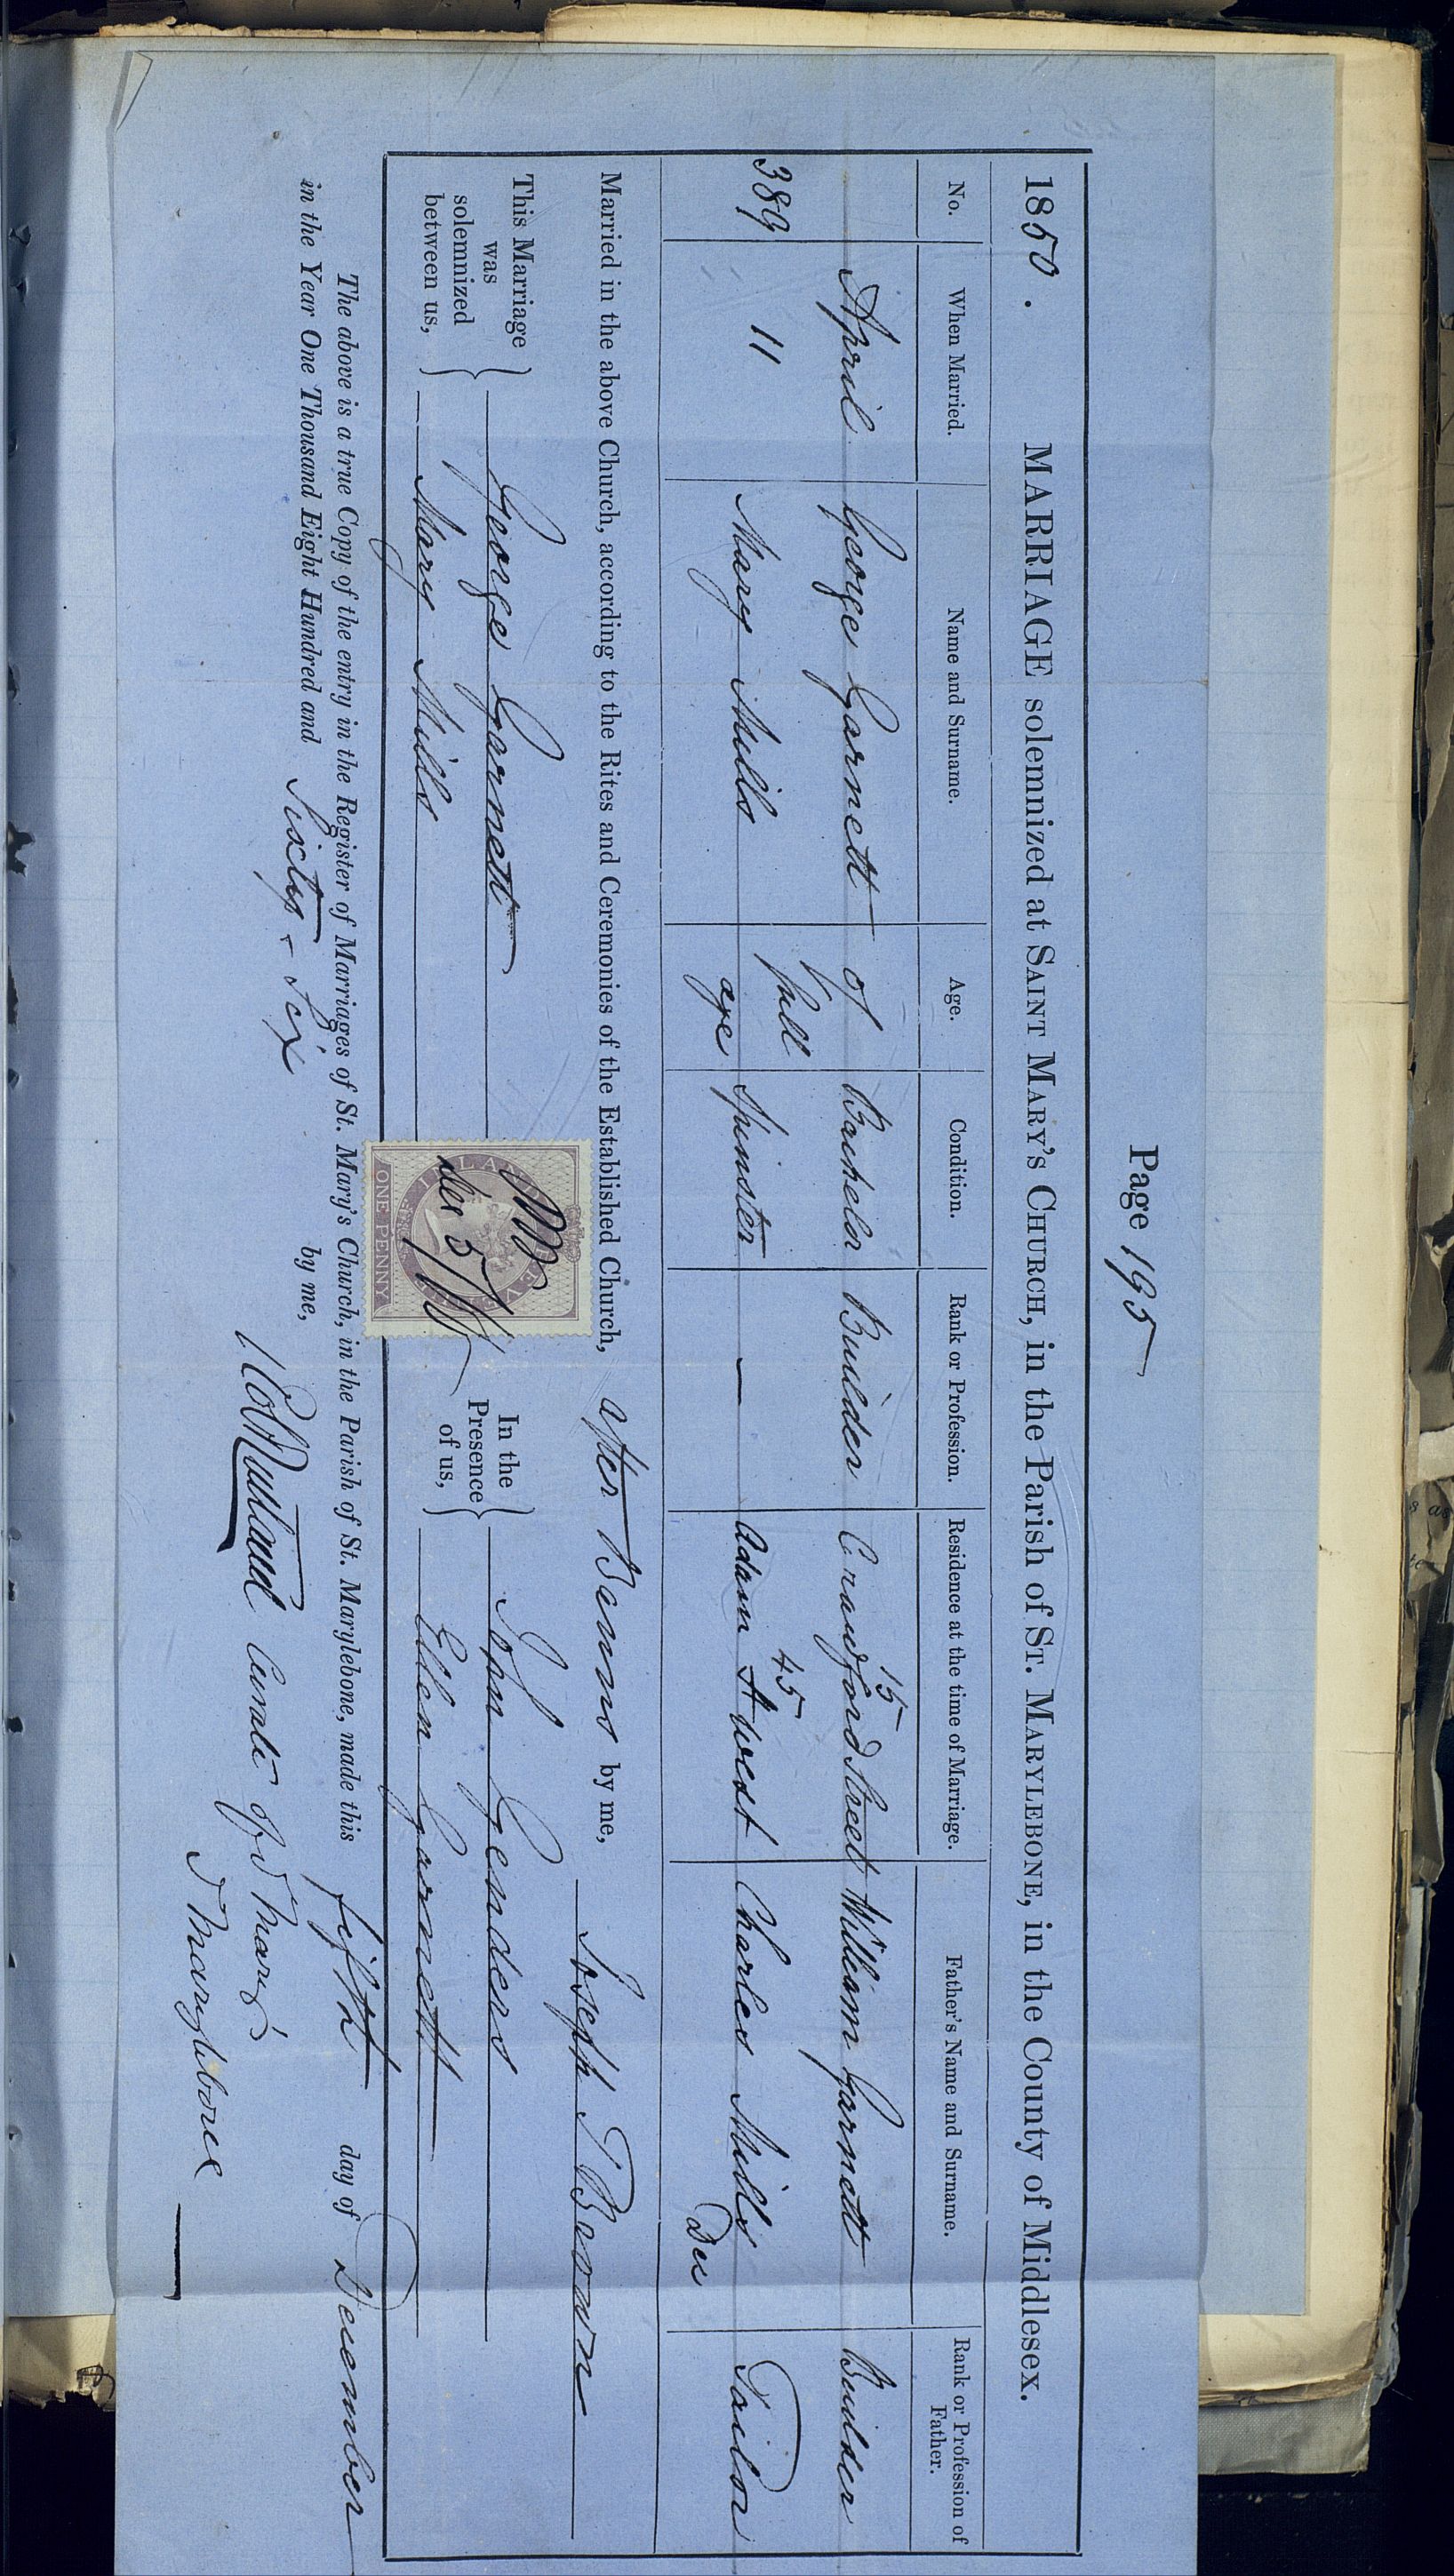 Page 195
1850. MARRIAGE solemnized at SAINT MARY'S CHURCH, in the Parish of ST. MARYLEBONE, in the County of Middlesex.
No. When Married. Name and Surname. Age. Condition. Rank or Profession. Residence at the time of Marriage. Father's Name and Surname. Rank or Profession of Father.
April George Garnett of Bachelor Builder 15 Crawford Street William Garnett Builder
389 11 full
Mary Mills age Spinster — 45 Adam St West Charles Mills Tailor
Dec
Married in the above Church, according to the Rites and Ceremonies of the Established Church, after Banns by me, Joseph T Brown
This Marriage was solemnized between us, George Garnett
Mary Mills
In the Presence of us, John Genders
Ellen Garnett
INLAND REVENUE
ONE PENNY
Dec 5/66
The above is a true Copy of the entry in the Register of Marriages of St. Mary's Church, in the Parish of St. Marylebone, made this fifth day of December
in the Year One Thousand Eight Hundred and Sixty-Six by me,
Curate of St Mary's
St Marylebone